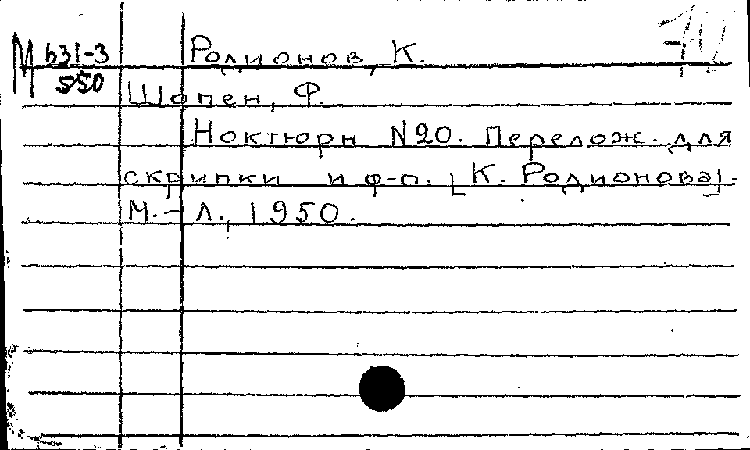 М 631-3 Родионов, К.
550
Шопен, Ф.
Ноктюрн N20. Перелож. для
скрипки и ф-п. [К. Родионова].
М.-Л., 1950.